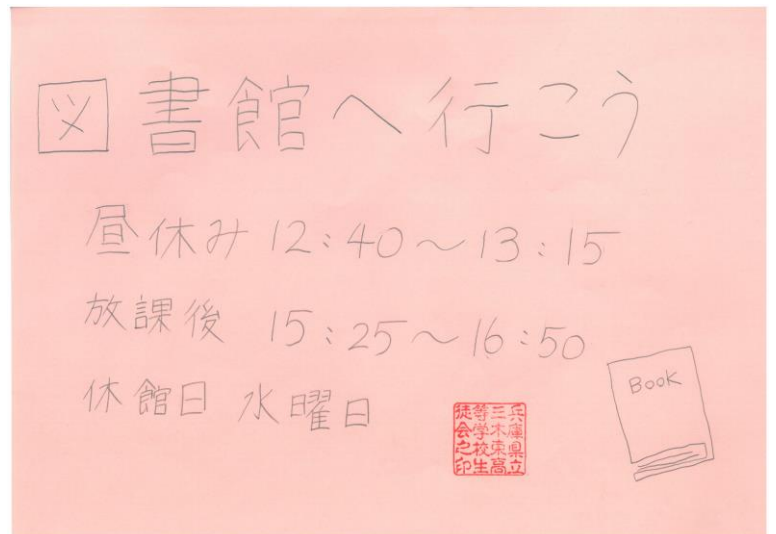 図書館へ行こう
昼休み 12:40～13:15
放課後 15:25～16:50
休館日 水曜日
BOOK
兵庫県立
三木東高
等学校生
徒会之印